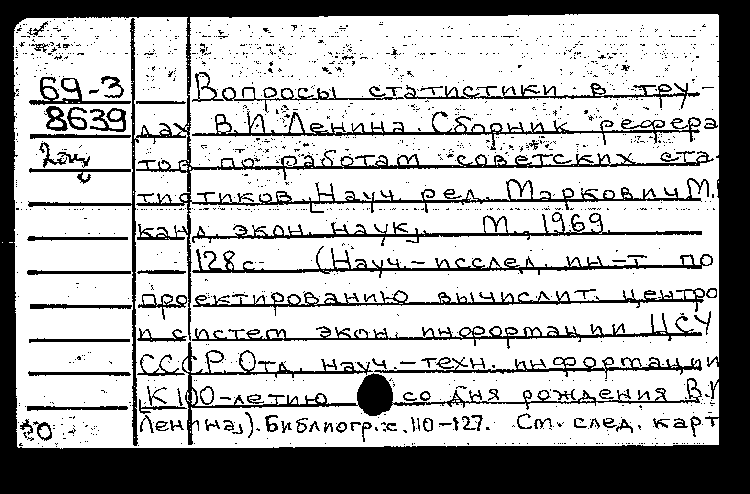 69-3
8639
Вопросы статистики в тру-
дах В.И. Ленина. Сборник рефера
тов по работам советских ста-
тистиков. [Науч. ред. Маркович М.
канд. экон. наук]. М., 1969.
128 с. (Науч.-исслед. ин-т по
проектированию вычислит. центро
и систем экон. информации ЦСУ
СССР. Отд. науч.-техн. информации
[К 100-летию со дня рождения В.И
Ленина]). Библиогр. с. 110-127. См. след. карт